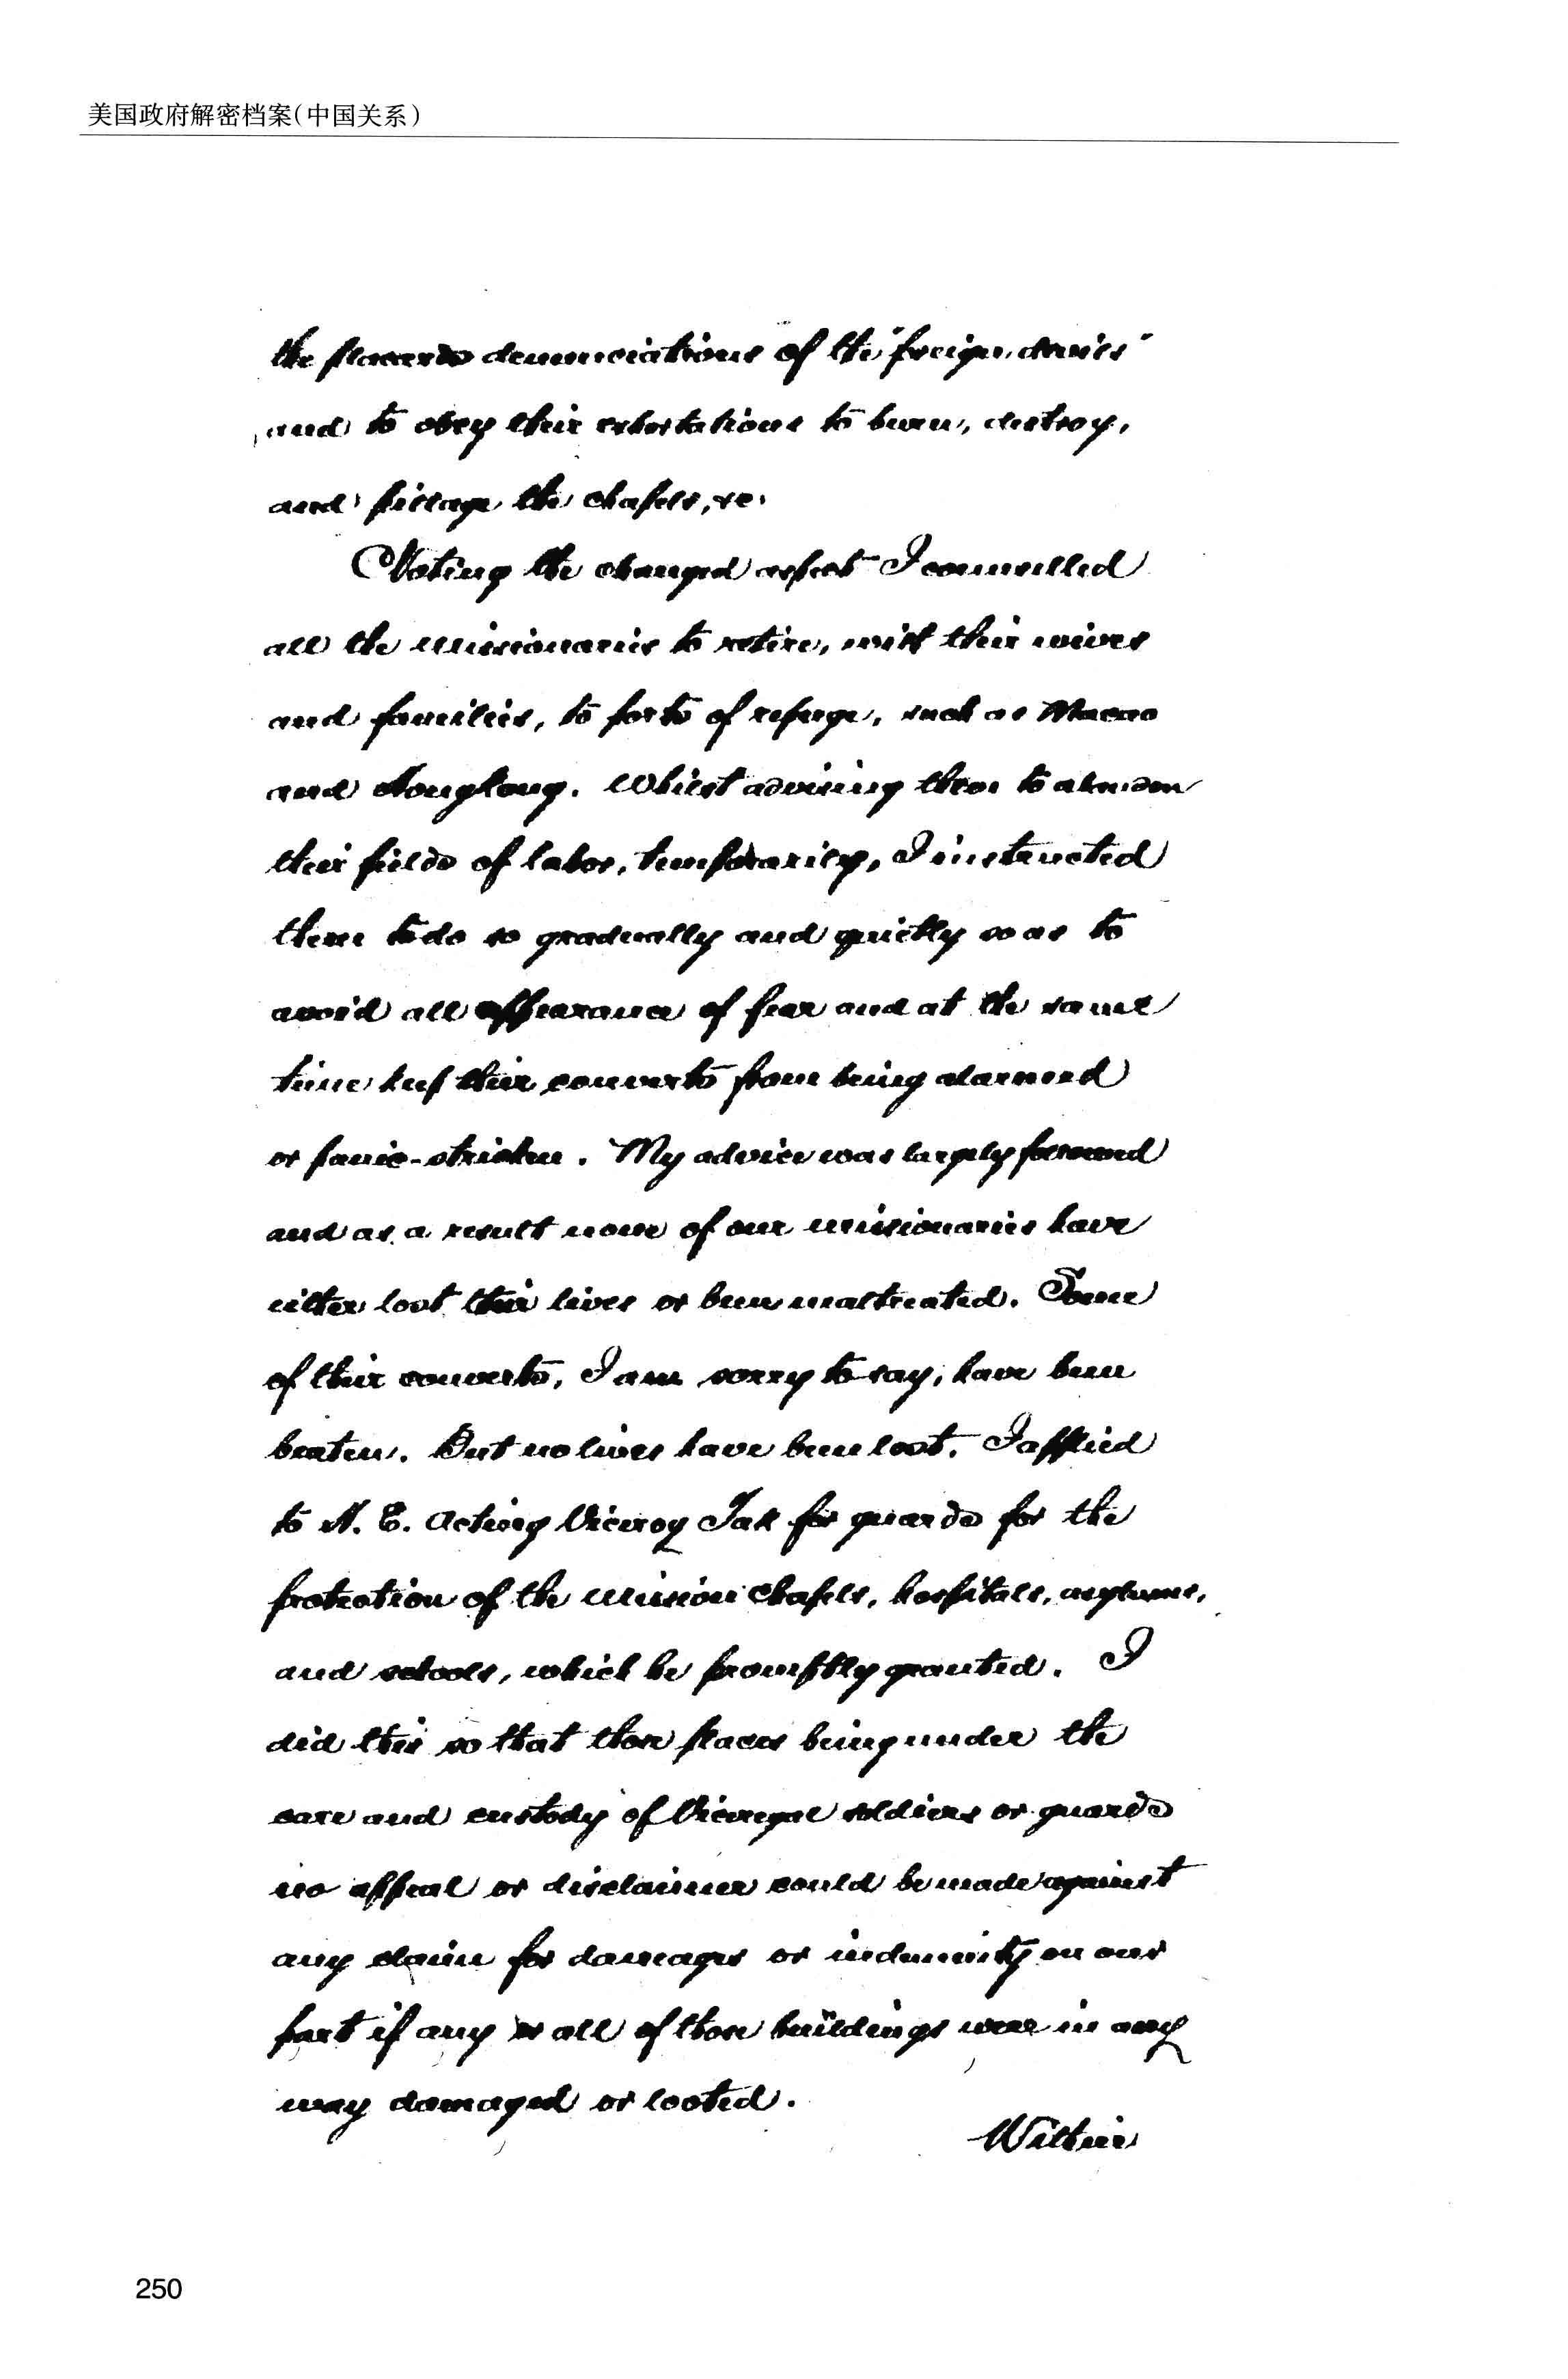 美国政府解密档案(中国关系)
the placards denunciations of the "foreign devils"
and to obey their exhortations to burn, destroy,
and pillage the chapels, &c.
Noting the changed aspect I counselled
all the missionaries to retire, with their wives
and families, to ports of refuge, such as Macao
and Hongkong. Whilst advising them to abandon
their fields of labor, temporarily, I instructed
them to do so gradually and quietly so as to
avoid all appearance of fear and at the same
time keep their converts from being alarmed
or panic-stricken. My advice was largely followed
and as a result none of our missionaries have
either lost their lives or been maltreated. Some
of their converts, I am sorry to say, have been
beaten. But no lives have been lost. I applied
to H. E. Acting Viceroy Tak for guards for the
protection of the mission chapels, hospitals, asylums,
and schools, which he promptly granted. I
did this so that those places being under the
care and custody of Viceregal soldiers or guards
no appeal or disclaimer could be made against
any claim for damages or indemnity on our
part if any or all of those buildings were in any
way damaged or looted.
Within
250